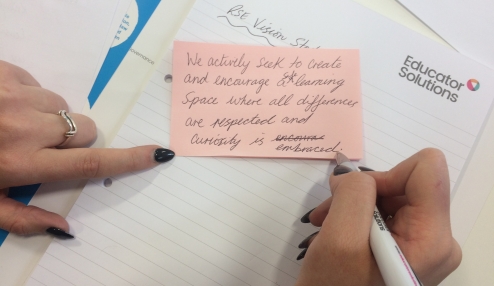 RSE Vision
Educator
Solutions
We actively seek to create
and encourage a learning
Space where all differences
are respected and
Curiosity is encoura
embraced.